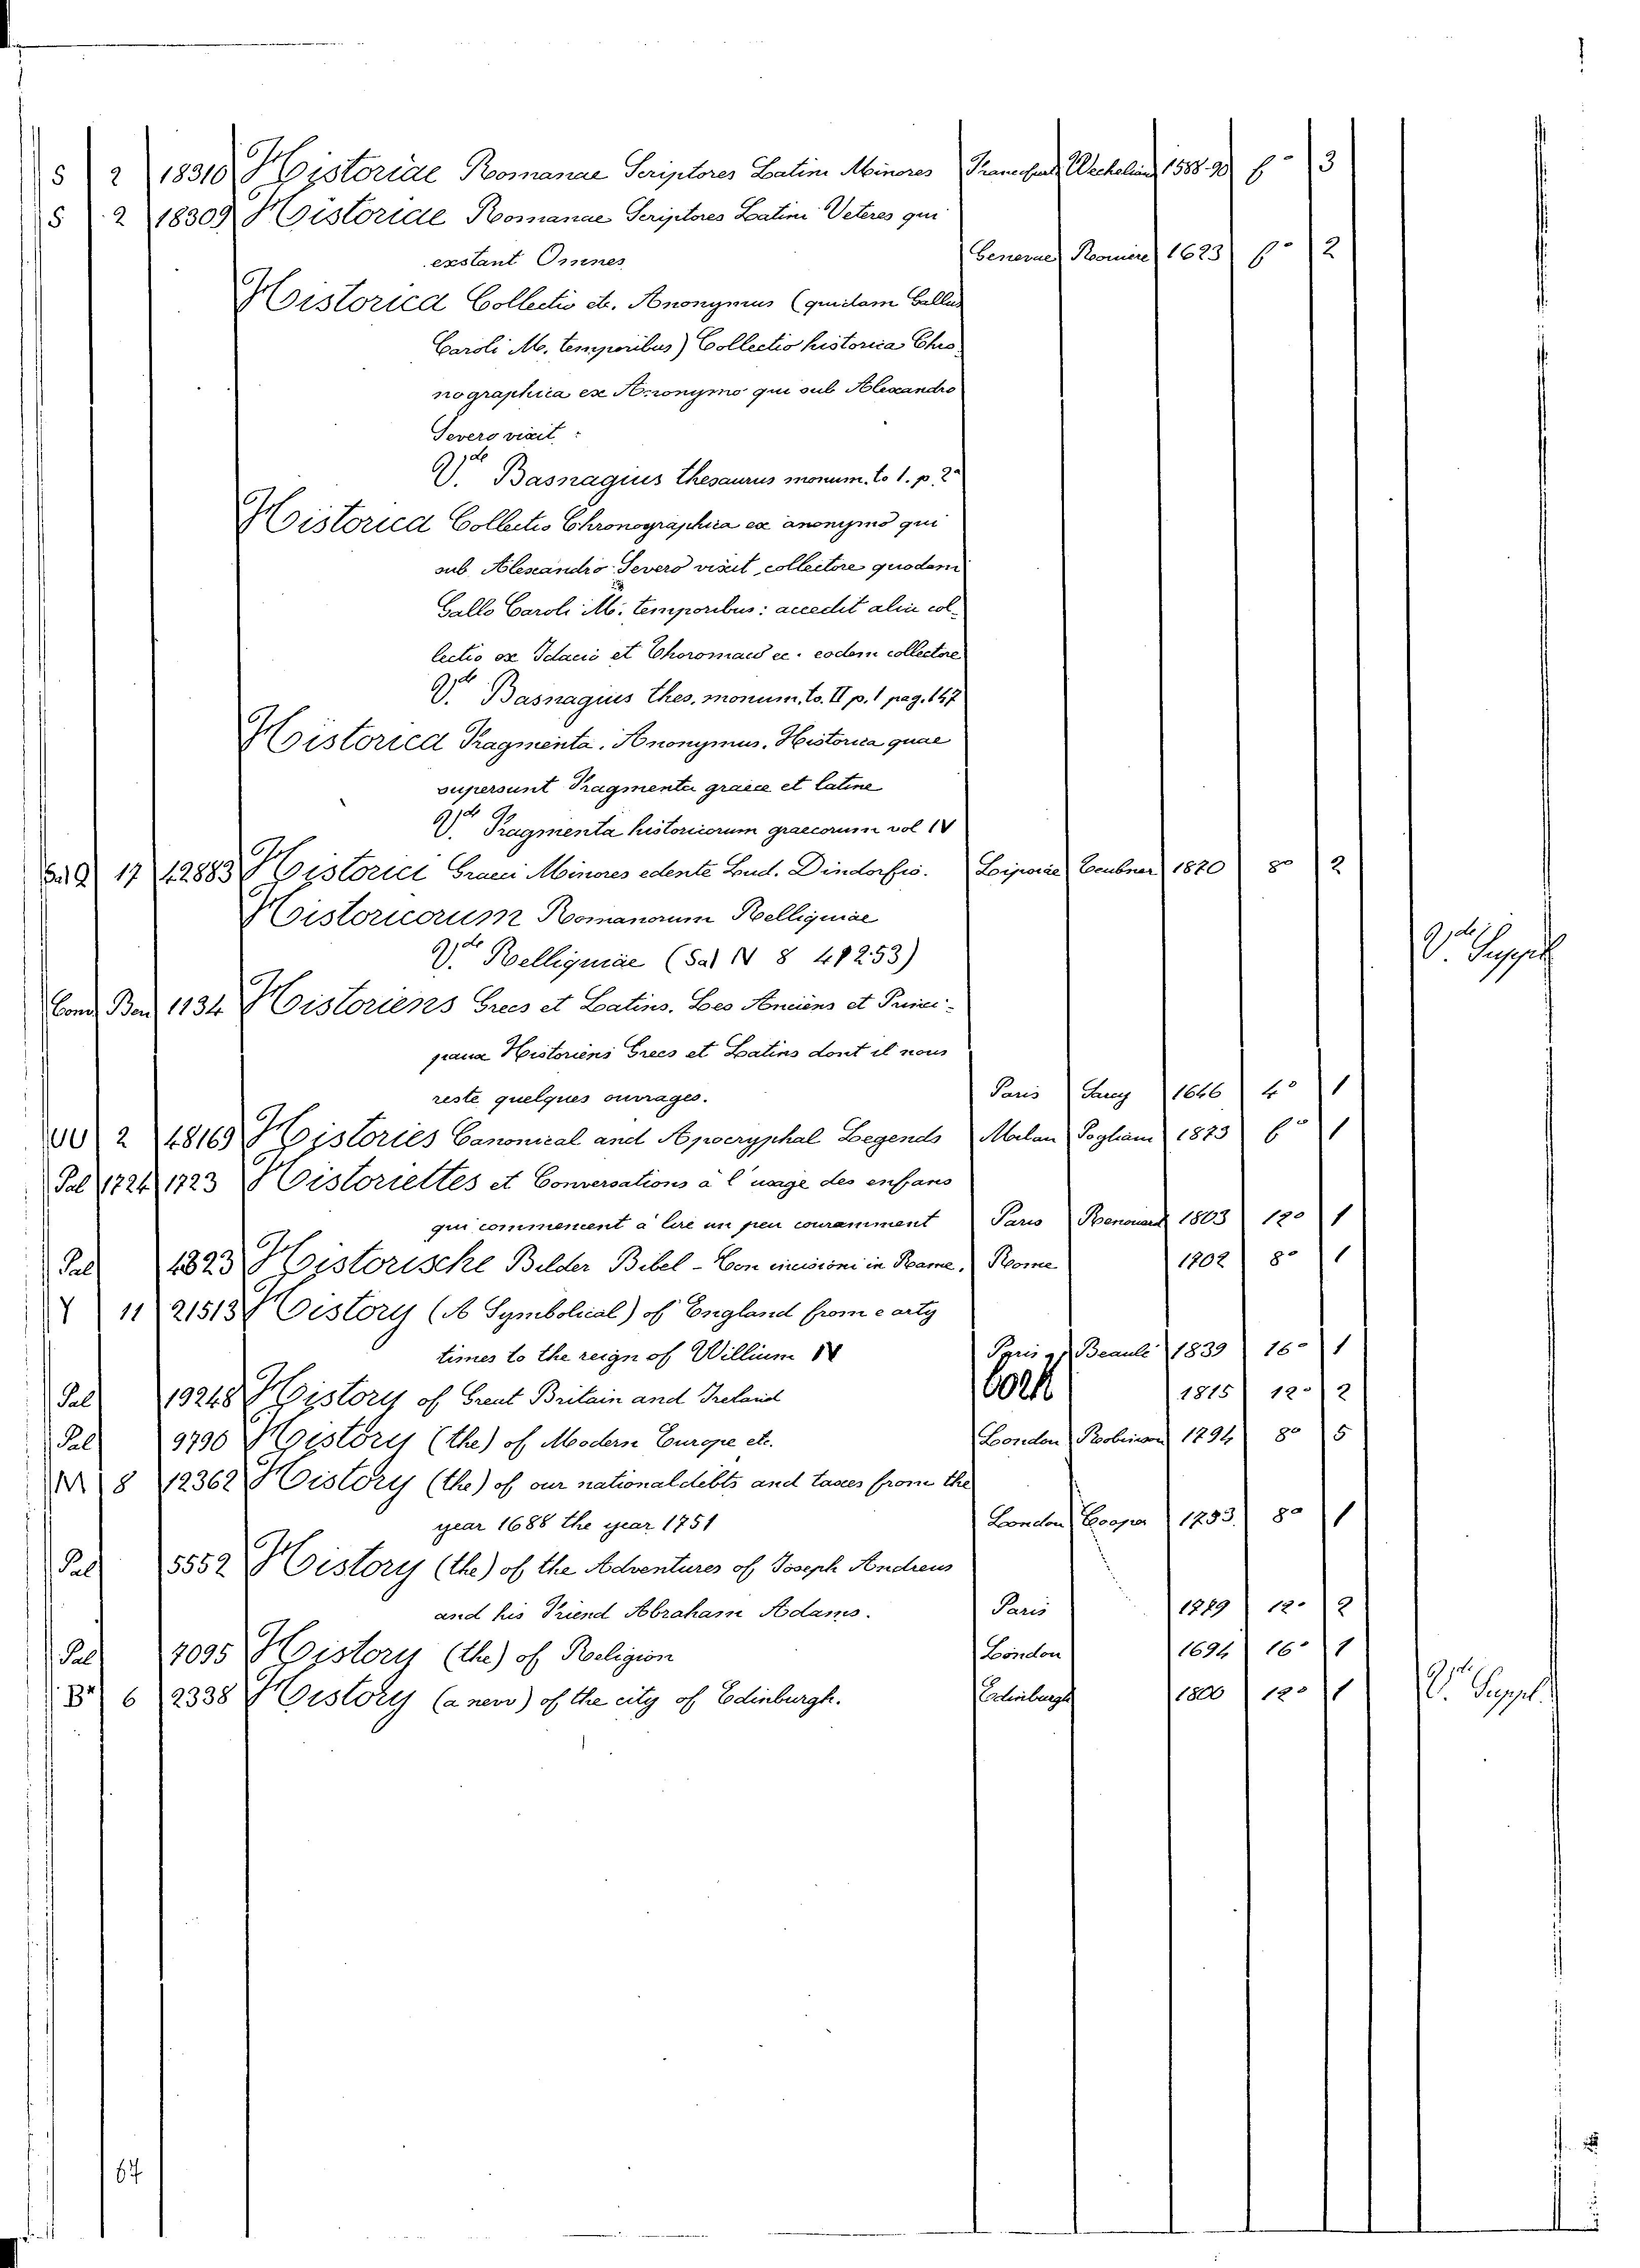 S 2 18310 Historiae Romanae Scriptores Latini Minores Francofurt Wechelius 1588-90 f° 3
S 2 18309 Historiae Romanae Scriptores Latini Veteres qui
exstant Omnes Genevae 1623 f° 2
Historica Collectio etc. Anonymus (quidam Gallus
Caroli M. temporibus) Collectio historica Chro
nographica ex Anonymo qui sub Alexandro
Severo vixit :
V.de Basnagius thesaurus monum. to 1. p. 2a
Historica Collectio Chronographica ex anonymo qui
sub Alexandro Severo vixit, collectore quodam
Gallo Caroli M. temporibus: accedit alia col-
lectio ex Idacio et ec. eodem collectore
V.de Basnagius thes. monum. to. II p. 1 pag. 147
Historica Fragmenta. Anonymus. Historica quae
supersunt Fragmenta graece et latine
V.de Fragmenta historicorum graecorum vol IV
Sal 9 17 42883 Historici Graeci Minores edente Lud. Dindorfio. Lipsiae Teubner 1870 8° 2
Historicorum Romanorum Relliquiae
V.de Relliquiae (Sal N 8 41253) V.de Suppl
Cons Ben 1134 Historiens Grecs et Latins. Les Anciens et Princi-
paux Historiens Grecs et Latins dont il nous
reste quelques ouvrages. Paris 1646 4° 1
2 48169 Histories Canonical and Apocryphal Legends Milan Pogliani 1873 f° 1
Pal 1724 1723 Historiettes et Conversations à l'usage des enfans
qui commencent à lire un peu couramment Paris Renouard 1803 12° 1
Pal 4823 Historische Bilder Bibel - Con incisioni in Rame. Rome 1702 8° 1
Y 11 21513 History (A Symbolical) of England from early
times to the reign of William IV Paris Beaulé 1839 16° 1
Pal 19248 History of Great Britain and Ireland Cork 1815 12° 2
Pal 9790 History (the) of Modern Europe etc. London Robinson 1794 8° 5
M 8 12362 History (the) of our national debts and taxes from the
year 1688 the year 1751 London Cooper 1753 8° 1
Pal 5552 History (the) of the Adventures of Joseph Andrews
and his Friend Abraham Adams. Paris 1779 12° 2
Pal 7095 History (the) of Religion London 1694 16° 1
6 2338 History (a new) of the city of Edinburgh. Edinburgh 1800 12° 1 V.de Suppl.
67